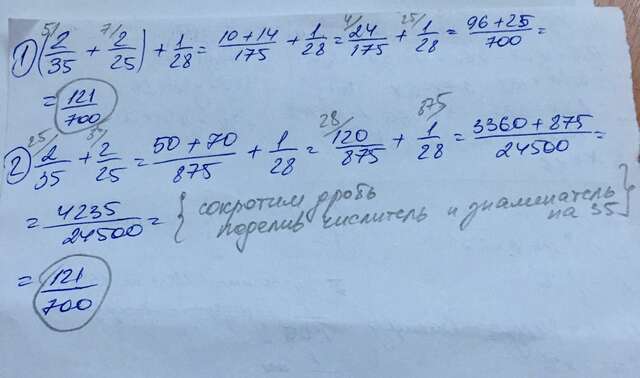 1) (5/ 2/35 + 7/ 2/25) + 1/28 = (10+14)/175 + 1/28 = 4/ 24/175 + 25/ 1/28 = (96+25)/700 =
= 121/700
2) 25/ 2/35 + 35/ 2/25 = (50+70)/875 + 1/28 = 28/ 120/875 + 875/ 1/28 = (3360+875)/24500 =
= 4235/24500 = { сокротим дробь
поделив числитель и знаменатель
на 35 }
= 121/700